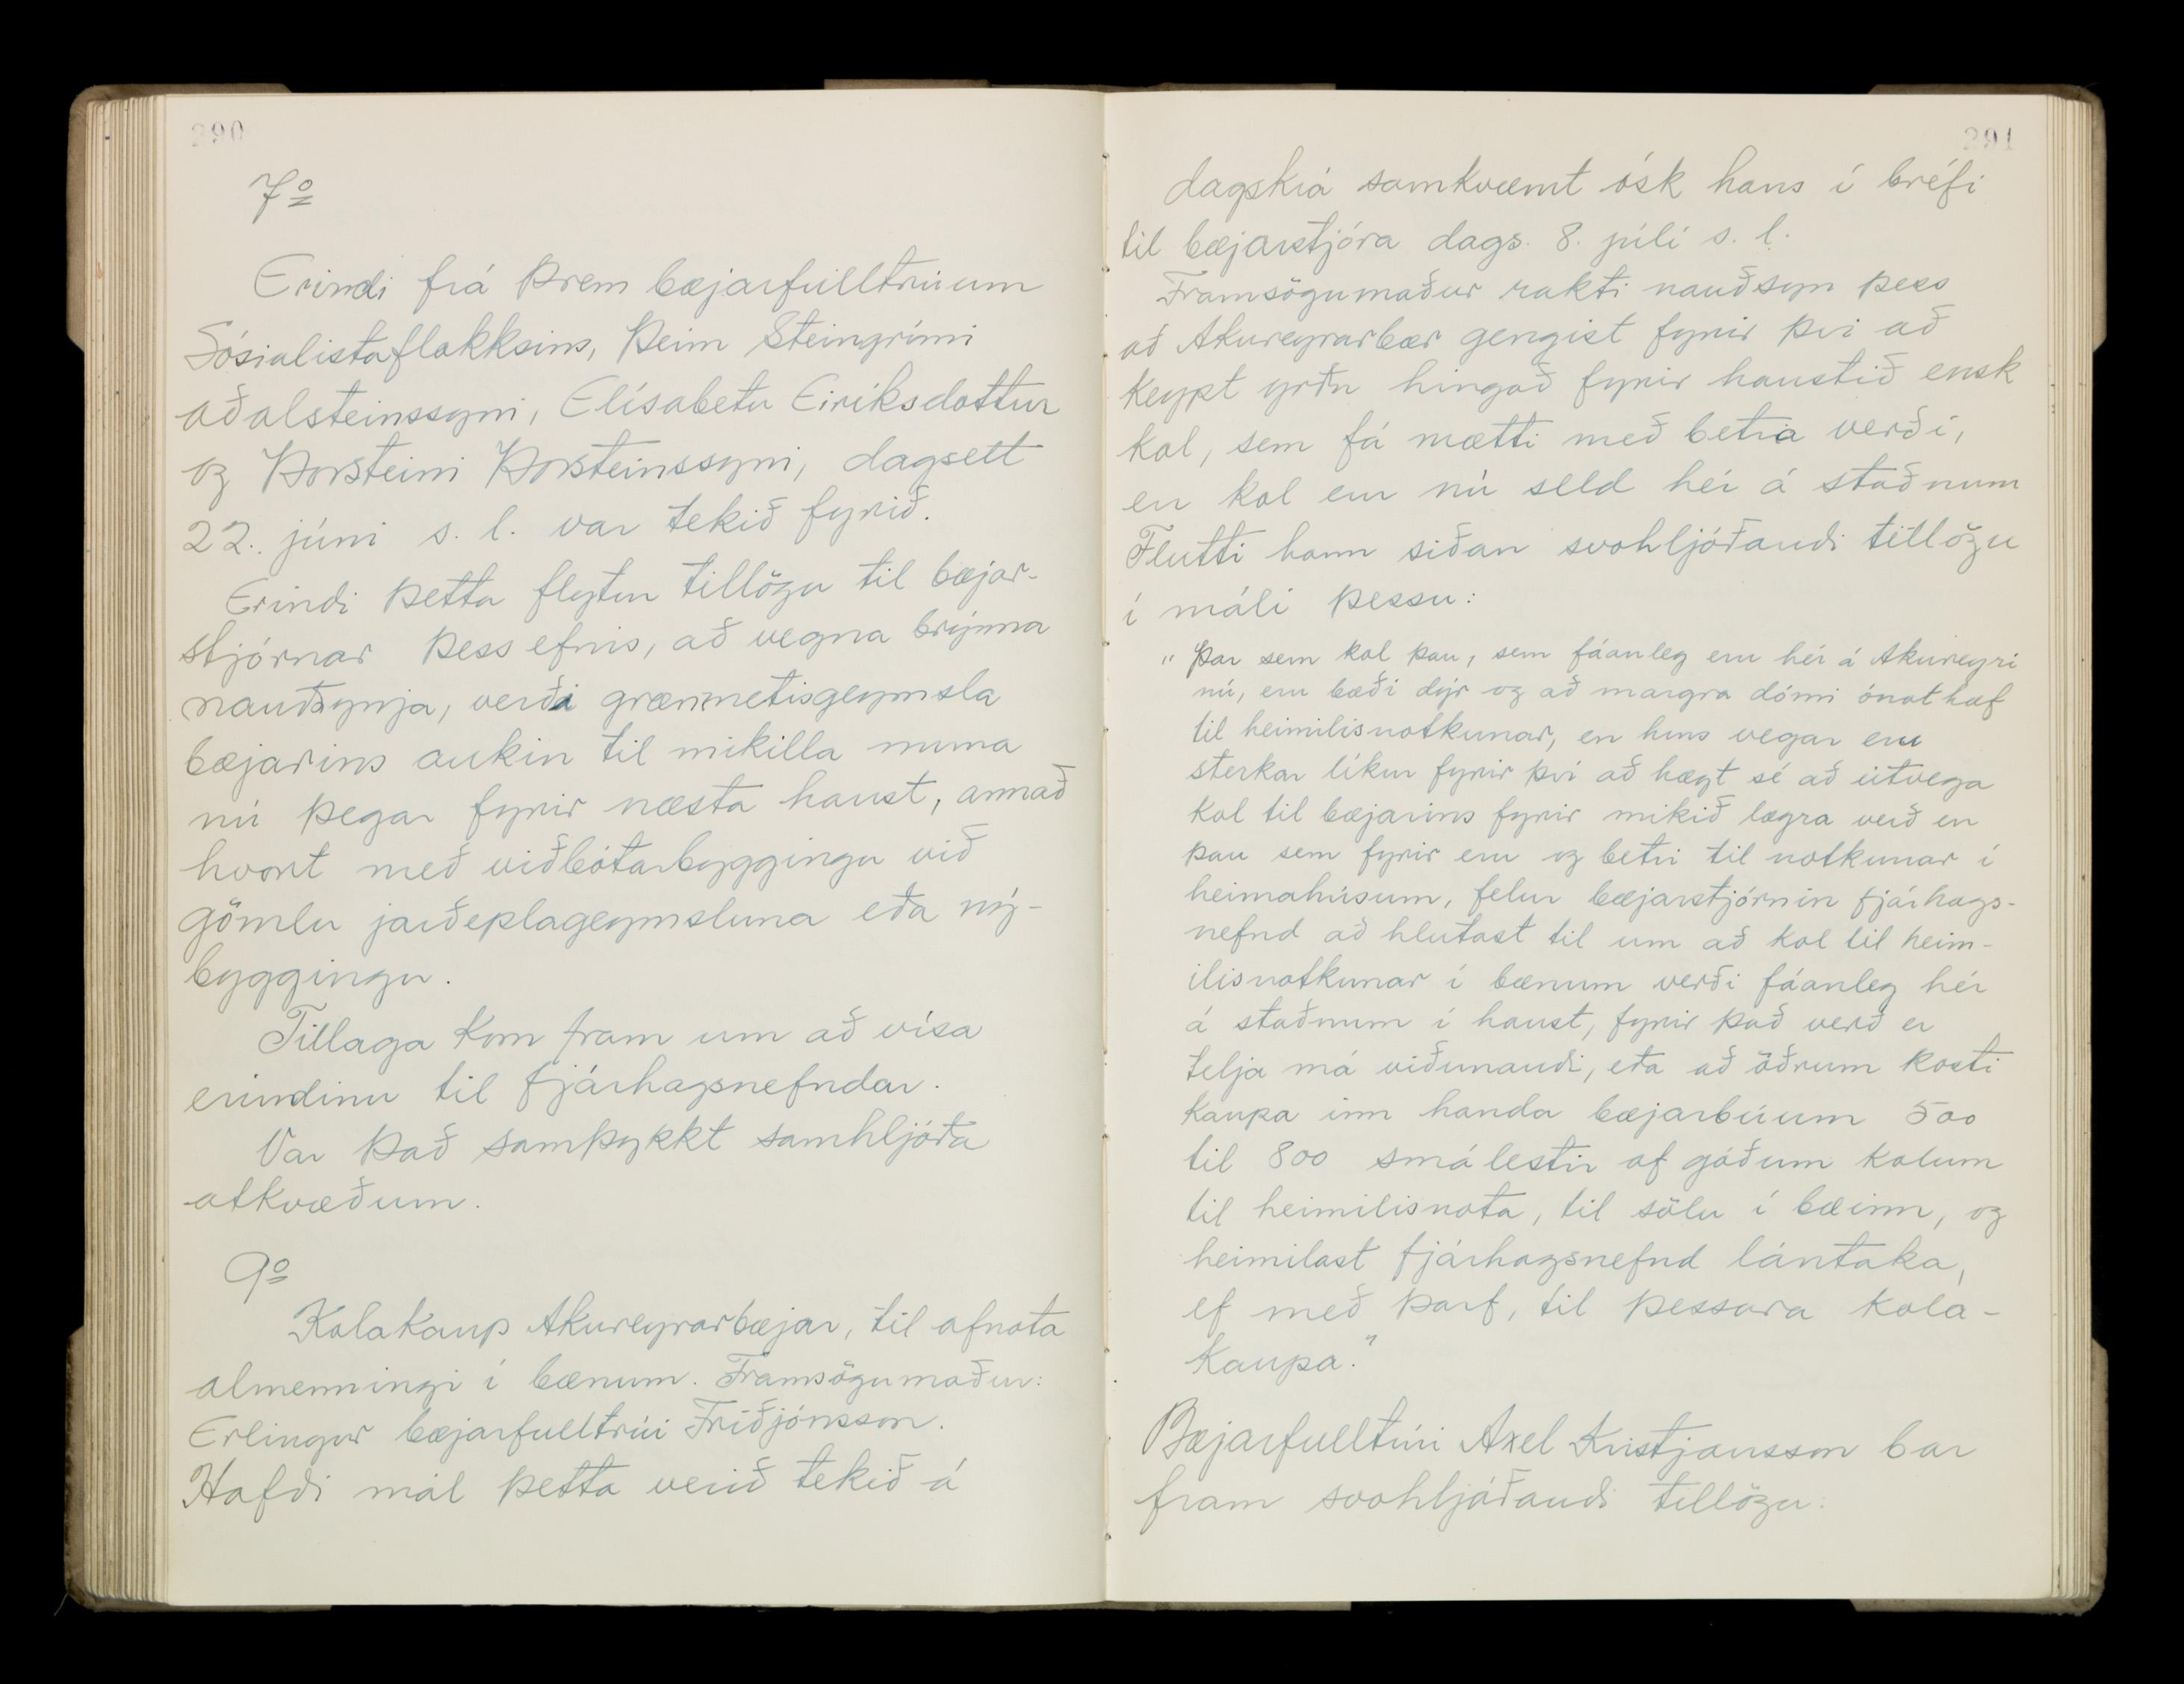 290
7º
Erindi frá þrem bæjarfulltrúum
Sósialistaflokksins, þeim Steingrími
Aðalsteinssyni, Elísabetu Eiríksdottur
og Þorsteini Þorsteinssyni, dagsett
22. júni s. l. var tekið fyrir.
Erindi þetta flytur tillögu til bæjar-
stjórnar þess efnis, að vegna brýnna
nauðsynja, verði grænmetisgeymsla
bæjarins aukin til mikilla muna
nú þegar fyrir næsta haust, annað
hvort með viðbótarbyggingu við
gömlu jarðeplageymsluna eða ný-
byggingu.
Tillaga kom fram um að vísa
erindinu til fjárhagsnefndar.
Var það samþykkt samhljóða
atkvæðum.
9º
Kolakaup Akureyrarbæjar, til afnota
almenningi í bænum. Framsögumaður:
Erlingur bæjarfulltrúi Friðjónsson.
Hafði mál þetta verið tekið á
291
dagskrá samkvæmt ósk hans í bréfi
til bæjarstjóra dags. 8. júlí s. l.
Framsögumaður rakti nauðsyn þess
að Akureyrarbær gengist fyrir því að
keypt yrðu hingað fyrir haustið ensk
kol, sem fá mætti með betra verði,
en kol eru nú seld hér á staðnum
Flutti hann síðan svohljóðandi tillögu
í máli þessu:
"Þar sem kol þau, sem fáanleg eru hér á Akureyri
nú, eru bæði dýr og að margra dómi ónothæf
til heimilisnotkunar, en hins vegar eru
sterkar líkur fyrir því að hægt sé að útvega
kol til bæjarins fyrir mikið lægra verð en
þau sem fyrir eru og betri til notkunar í
heimahúsum, felur bæjarstjórnin fjárhags-
nefnd að hlutast til um að kol til heim-
ilisnotkunar í bænum verði fáanleg hér
á staðnum í haust, fyrir það verð er
telja má viðunandi, eða að öðrum kosti
kaupa inn handa bæjarbúum 500
til 800 smálestir af góðum kolum
til heimilisnota, til sölu í bæinn, og
heimilast fjárhagsnefnd lántaka,
ef með þarf, til þessara kola-
kaupa."
Bæjarfulltrúi Axel Kristjansson bar
fram svohljóðandi tillögu: